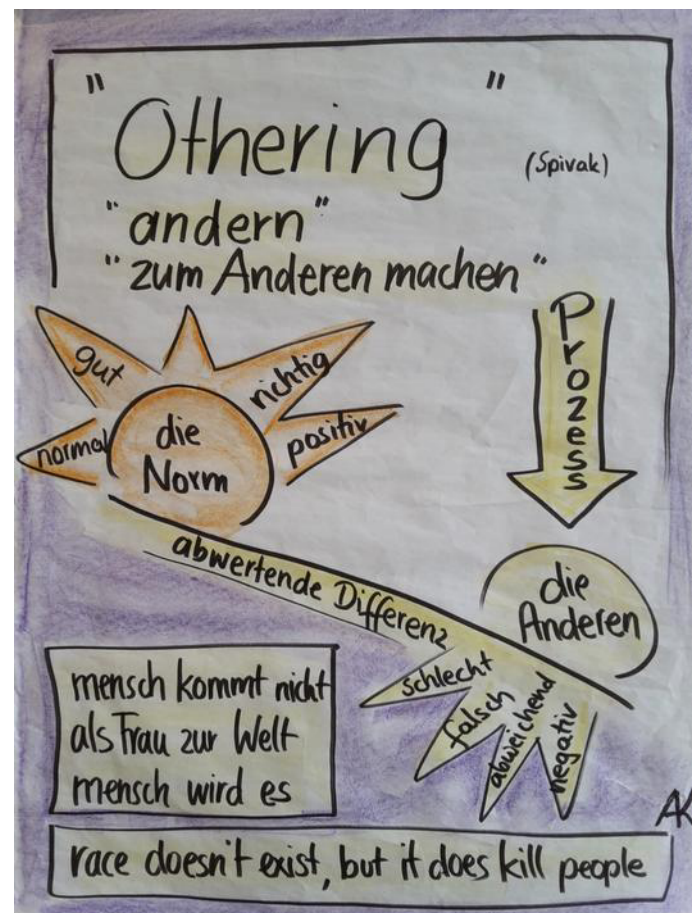 "Othering"
(Spivak)
"andern"
"zum Anderen machen"
Prozess
gut
richtig
normal
positiv
die
Norm
abwertende Differenz
die
Anderen
schlecht
falsch
abweichend
negativ
mensch kommt nicht
als Frau zur Welt
mensch wird es
AK
race doesn't exist, but it does kill people